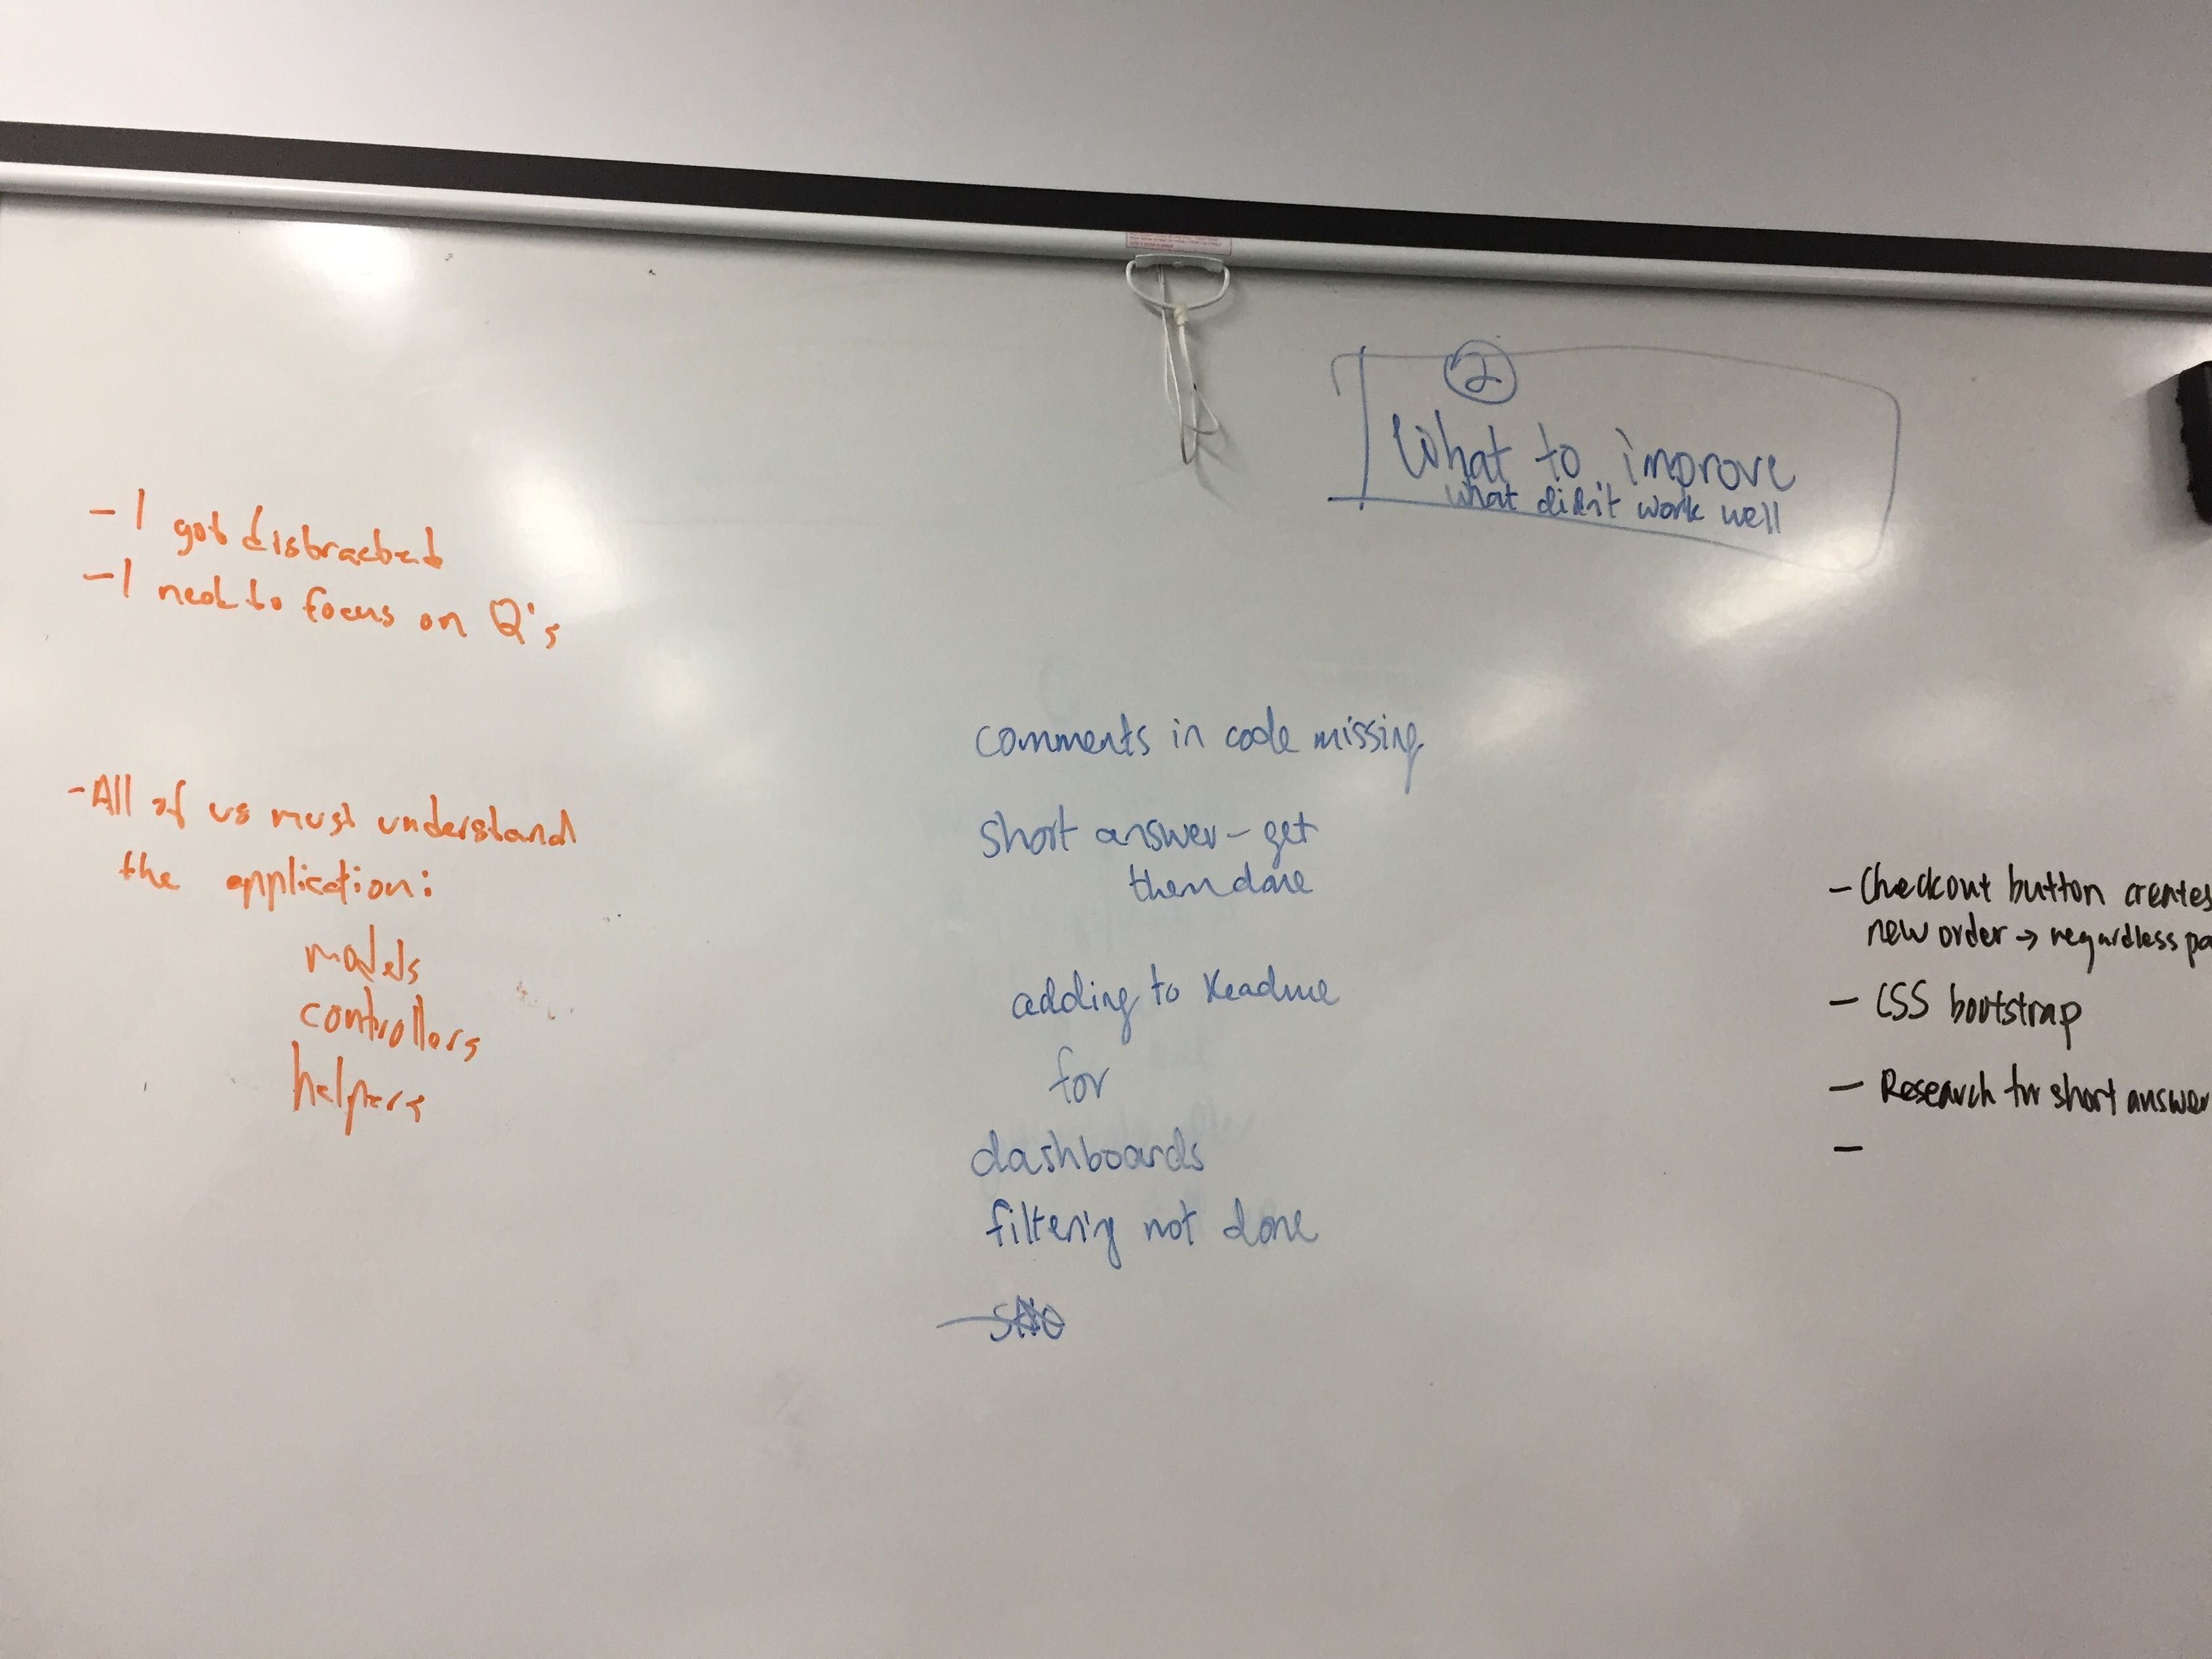 ②
What to improve
what didn't work well
- I got distracted
- I need to focus on Q's
- All of us must understand
the application:
models
controllers
helpers
comments in code missing
short answer - get
them done
adding to Readme
for
dashboards
filtering not done
- Checkout button creates
new order → regardless pa
- CSS bootstrap
- Research for short answer
-